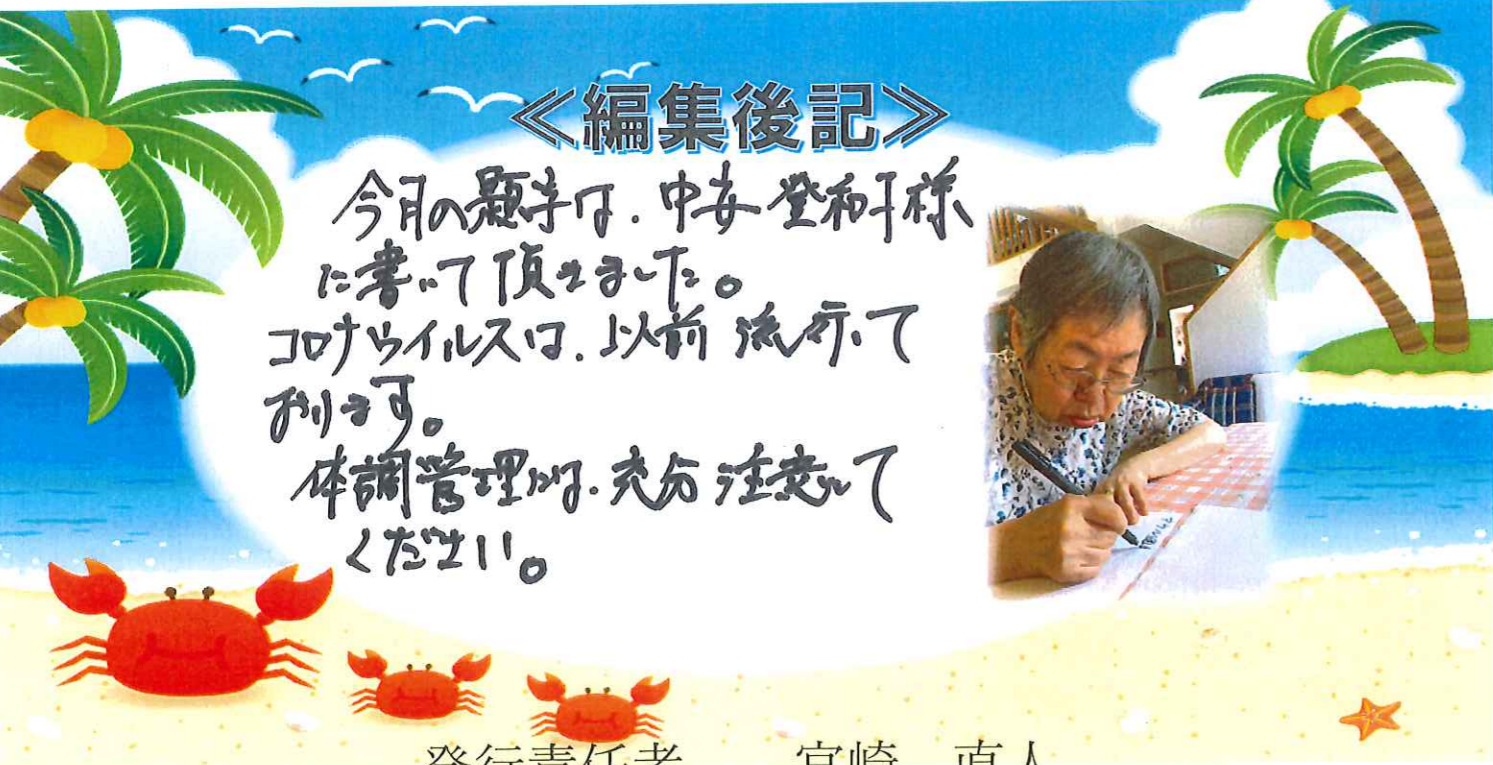 ≪編集後記≫
今月の題字は、中安登和子様
に書いて頂きました。
コロナウイルスは、以前流行して
おります。
体調管理には、充分注意して
ください。
発行責任者 宮崎 直人